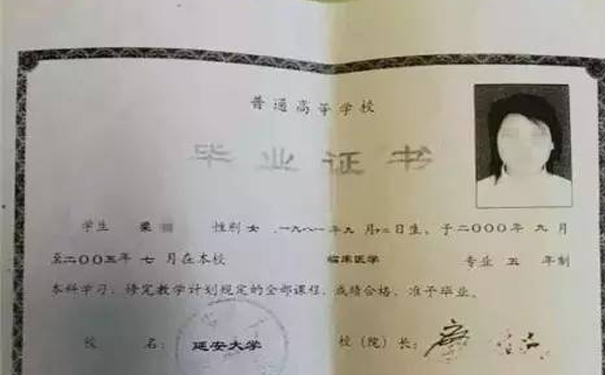 普通高等学校
毕业证书
学生 梁 性别 女 ，一九八一年九月十二日生，于二〇〇〇年 九 月
至二〇〇五年 七 月在本校 临床医学 专业 五 年制
本科学习，修完教学计划规定的全部课程，成绩合格，准予毕业。
校 名： 延安大学 校（院）长：